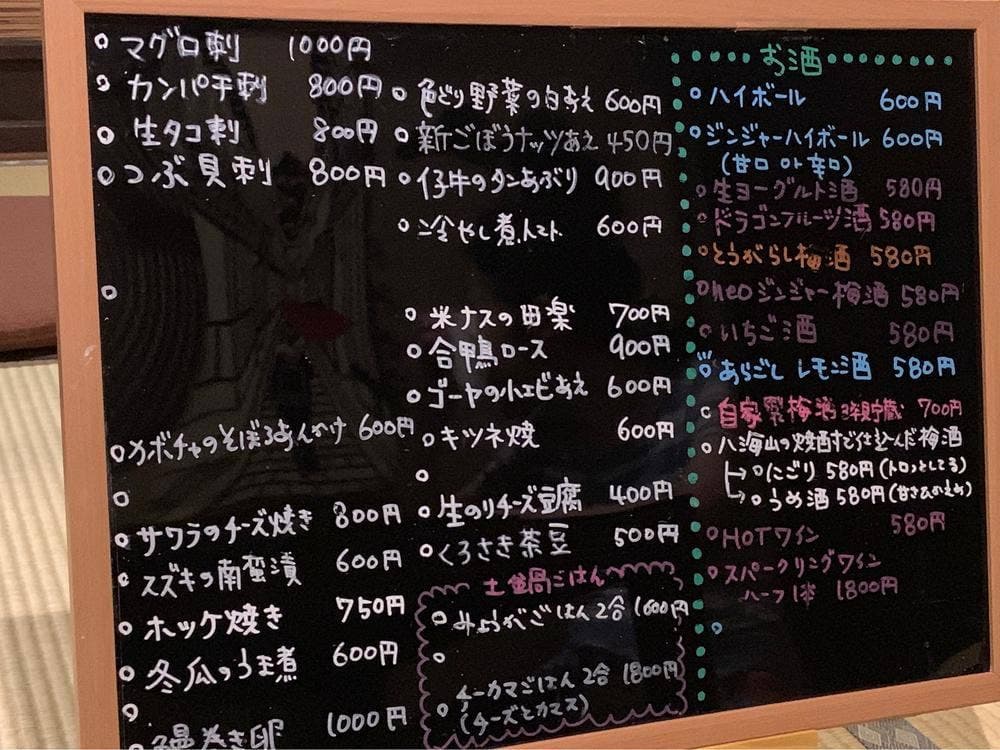 マグロ刺 1000円
カンパチ刺 800円
生タコ刺 800円
つぶ貝刺 800円
カボチャのそぼろあんかけ 600円
サワラのチーズ焼き 800円
スズキの南蛮漬 600円
ホッケ焼き 750円
冬瓜のうま煮 600円
鰻巻き卵 1000円
色どり野菜の白あえ 600円
新ごぼうナッツあえ 450円
仔牛のタンあぶり 900円
冷やし煮トマト 600円
米ナスの田楽 700円
合鴨ロース 900円
ゴーヤの小エビあえ 600円
キツネ焼 600円
生のりチーズ豆腐 400円
くろさき茶豆 500円
土鍋ごはん
みょうがごはん 2合 1600円
チーカマごはん 2合 1800円
(チーズとカマス)
お酒
ハイボール 600円
ジンジャーハイボール 600円
(甘口 or 辛口)
生ヨーグルト酒 580円
ドラゴンフルーツ酒 580円
とうがらし梅酒 580円
neoジンジャー梅酒 580円
いちご酒 580円
あらごし レモン酒 580円
自家製梅酒 3年貯蔵 700円
八海山の焼酎で仕込んだ梅酒
にごり 580円 (トロッとしてる)
うめ酒 580円 (甘さひかえめ)
HOTワイン 580円
スパークリングワイン
ハーフ1本 1800円